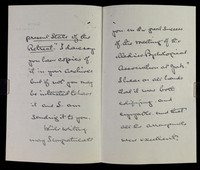 present State of the
Retreat". I dare say
you have copies of
it in your archives
but if not you may
be interested to have
it and I am
sending it to you.
While writing
may I congratulate
you on the great success
of the meeting of the
Medico Psychological
Association at York.
I hear on all hands
that it was both
edifying and
enjoyable and that
all the arrangements
were excellent.